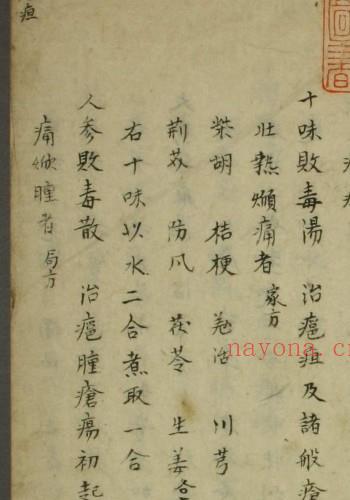 十味敗毒湯 治瘟疽及諸般瘡
壯熱煩痛者 家方
柴胡 桔梗 羌活 川芎
荊芥 防风 茯苓 生姜
右十味以水二合煮取一合
人参敗毒散 治瘟腫瘡瘍初起
痛焮腫者 局方
疽
nayona.cn